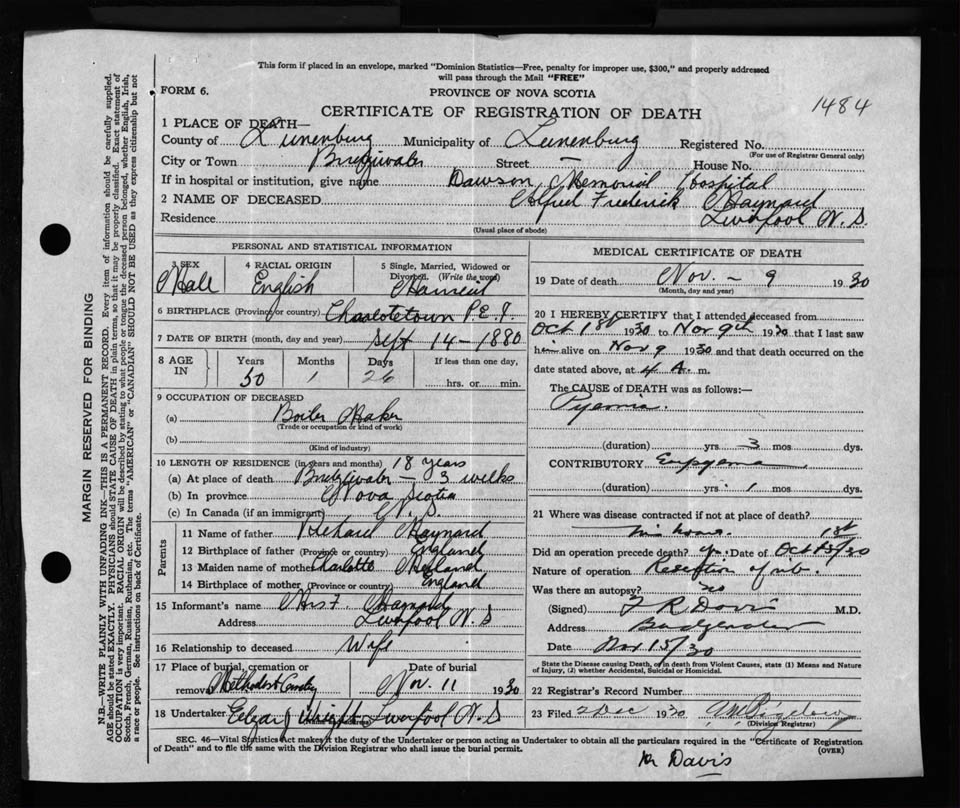 This form if placed in an envelope, marked "Dominion Statistics—Free, penalty for improper use, $300," and properly addressed
will pass through the Mail "FREE"
FORM 6.
PROVINCE OF NOVA SCOTIA
1484
CERTIFICATE OF REGISTRATION OF DEATH
1 PLACE OF DEATH—
County of Lunenburg Municipality of Lunenburg Registered No.
(For use of Registrar General only)
City or Town Bridgewater Street — House No.
If in hospital or institution, give name Dawson Memorial Hospital
2 NAME OF DECEASED Alfred Frederick Maynard
Residence Liverpool N.S
(Usual place of abode)
PERSONAL AND STATISTICAL INFORMATION
3 SEX Male
4 RACIAL ORIGIN English
5 Single, Married, Widowed or Divorced. (Write the word) Married
6 BIRTHPLACE (Province or country) Charlotetown P.E.I.
7 DATE OF BIRTH (month, day and year) Sept 14 - 1880
8 AGE IN Years 50 Months 1 Days 26 If less than one day, hrs. or min.
9 OCCUPATION OF DECEASED
(a) Boiler Maker
(Trade or occupation or kind of work)
(b)
(Kind of industry)
10 LENGTH OF RESIDENCE (in years and months) 18 years
(a) At place of death Bridgewater — 3 weeks
(b) In province Nova Scotia
(c) In Canada (if an immigrant) N.S.
Parents
11 Name of father Richard Maynard
12 Birthplace of father (Province or country) England
13 Maiden name of mother Charlotte
14 Birthplace of mother (Province or country) England
15 Informant's name Mrs F. Maynard
Address Liverpool N.S
16 Relationship to deceased Wife
17 Place of burial, cremation or removal Methodist Cemetry Date of burial Nov. 11 1930
18 Undertaker Edgar J Wright Liverpool N.S
MEDICAL CERTIFICATE OF DEATH
19 Date of death Nov — 9 1930
(Month, day and year)
20 I HEREBY CERTIFY that I attended deceased from
Oct 18th 1930 to Nov 9th 1930 that I last saw
him alive on Nov 9 1930 and that death occurred on the
date stated above, at 4 A. m.
The CAUSE of DEATH was as follows:—
Pyemia
(duration) yrs 3 mos dys.
CONTRIBUTORY Empyema
(duration) yrs 1 mos dys.
21 Where was disease contracted if not at place of death?
his home
Did an operation precede death? yes Date of Oct /30
Nature of operation Resection of rib.
Was there an autopsy? no
(Signed) F R Davis M.D.
Address Bridgewater
Date Nov 15/30
State the Disease causing Death, or, in death from Violent Causes, state (1) Means and Nature
of Injury, (2) whether Accidental, Suicidal or Homicidal.
22 Registrar's Record Number
23 Filed 2 Dec 1930
(Division Registrar)
SEC. 46—Vital Statistics Act makes it the duty of the Undertaker or person acting as Undertaker to obtain all the particulars required in the "Certificate of Registration
of Death" and to file the same with the Division Registrar who shall issue the burial permit.
(OVER)
Dr Davis
MARGIN RESERVED FOR BINDING
N.B.—WRITE PLAINLY WITH UNFADING INK—THIS IS A PERMANENT RECORD. Every item of information should be carefully supplied.
AGE should be stated EXACTLY. PHYSICIANS should STATE CAUSE OF DEATH in plain terms, so that it may be properly classified. Exact statement of
OCCUPATION is very important. RACIAL ORIGIN will be described by stating to what people or tongue the deceased person belonged, whether English, Irish,
Scotch, French, German, Russian, Ruthenian, etc. The terms "AMERICAN" or "CANADIAN" SHOULD NOT BE USED as they express citizenship but not
a race or people. See instructions on back of Certificate.